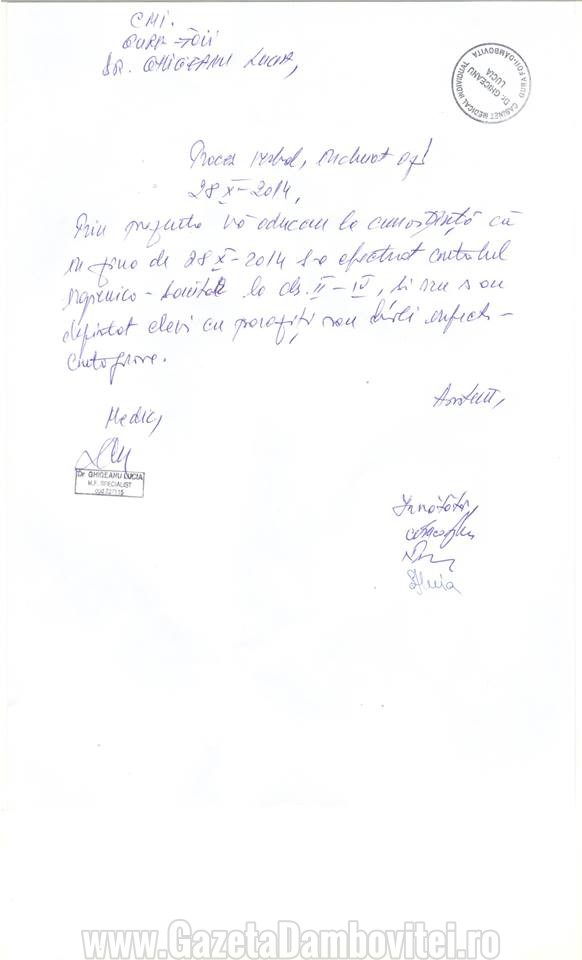 CMI.
GURA-FOII
DR. GHIGEANU LUCIA,
CABINET MEDICAL INDIVIDUAL
Dr. GHICEANU
LUCIA
GURA FOII-DÂMBOVIŢA
Proces verbal, încheiat azi
28 X-2014,
Prin prezenta vă aducem la cunoştinţă că
în ziua de 28 X-2014 s-a efectuat controlul
igienico-sanitar la cls. II-IV, şi nu s-au
depistat elevi cu paraziţi sau boli infecto-
contagioase.
Medic,
Asistent,
Dr. GHIGEANU LUCIA
M.F. SPECIALIST
Învăţători,
Silvia
www.GazetaDambovitei.ro